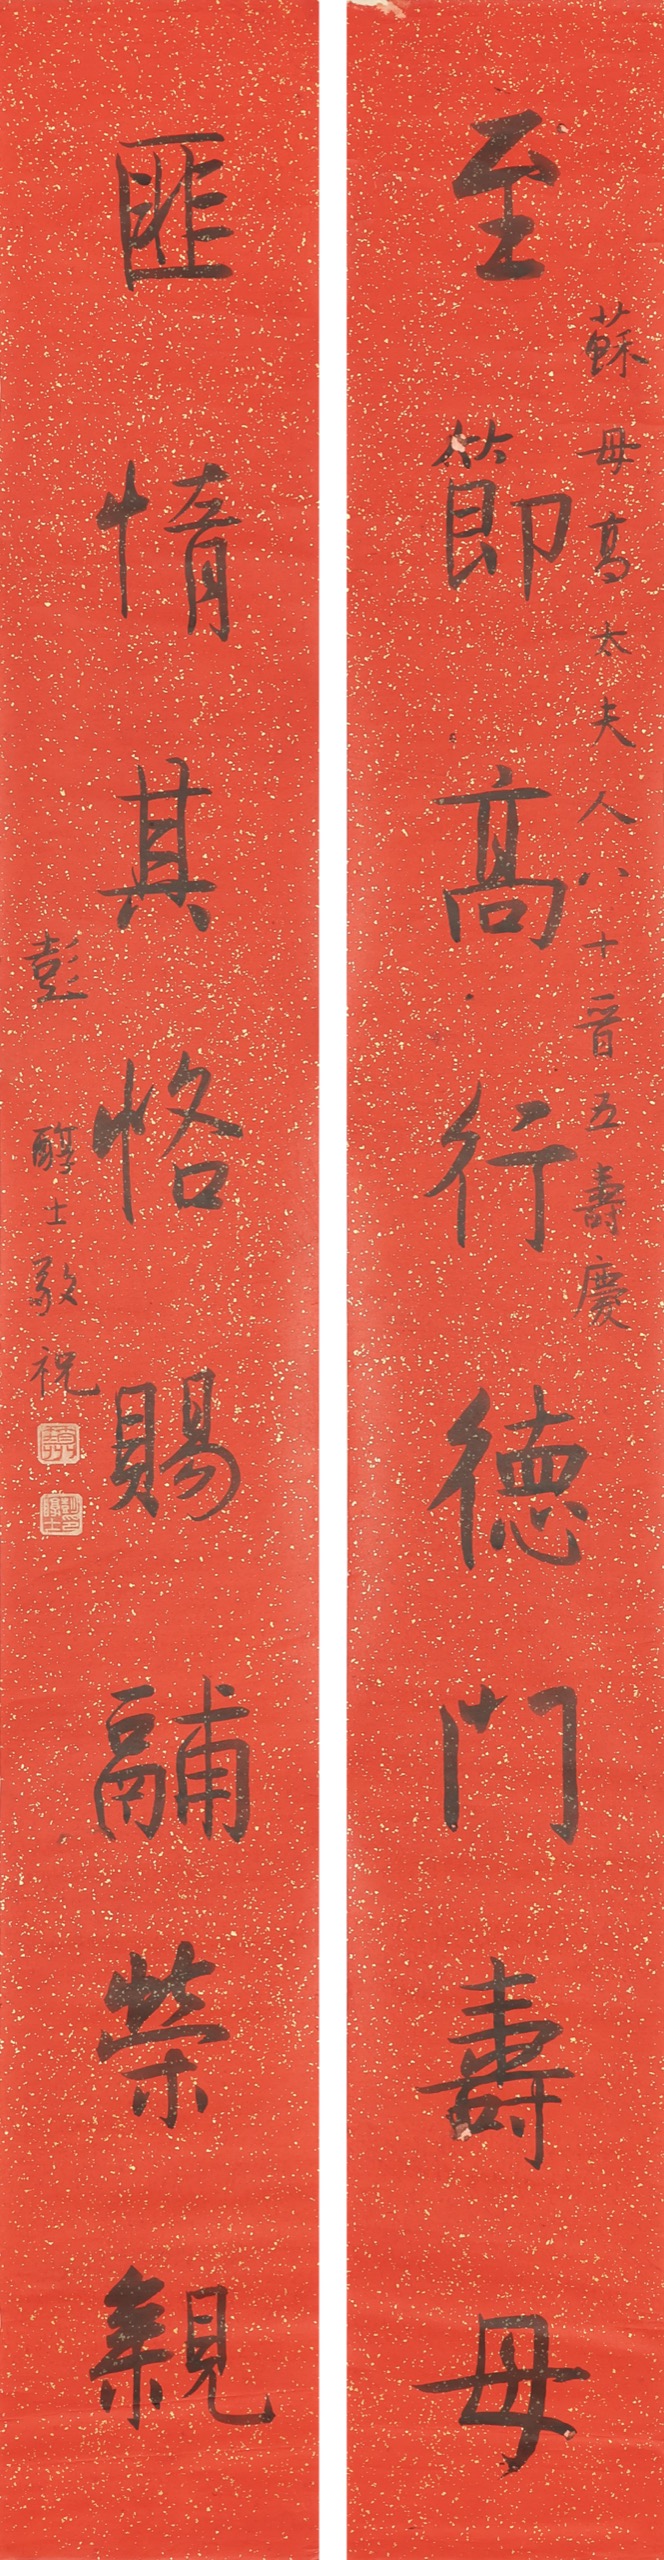 蘇母高太夫人八十晉五壽慶
至節高行德門壽母
匪惰其恪賜黼榮親
彭醇士敬祝